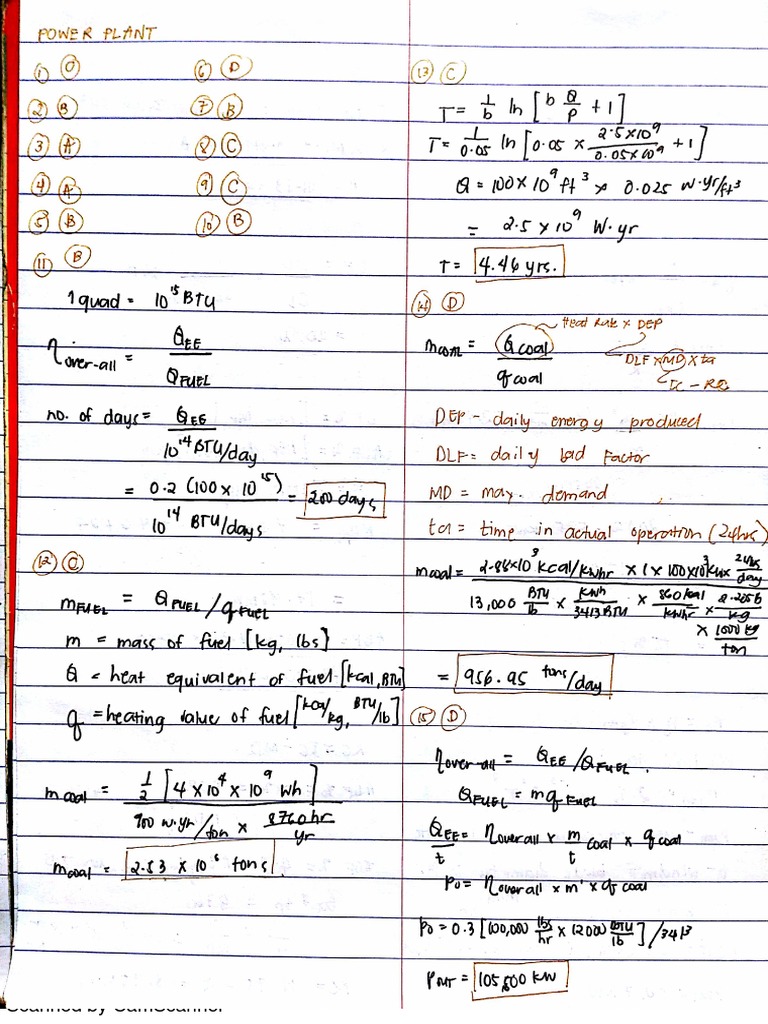 POWER PLANT
① C ⑥ D
② B ⑦ B
③ A ⑧ C
④ A ⑨ C
⑤ B ⑩ B
⑪ B
1 quad = 10^15 BTU
η over-all = Q_EE / Q_FUEL
no. of days = Q_EE / 10^14 BTU/day
= 0.2 (100 x 10^15) / 10^14 BTU/days = 200 days
⑫ C
m_FUEL = Q_FUEL / q_FUEL
m = mass of fuel [kg, lbs]
Q = heat equivalent of fuel [kcal, BTU]
q = heating value of fuel [kcal/kg, BTU/lb]
m_coal = 1/2 [4 x 10^4 x 10^9 Wh] / 900 w.yr/ton x 8760hr/yr
m_coal = 2.53 x 10^6 tons
⑬ C
T = 1/b ln [b Q/P + 1]
T = 1/0.05 ln [0.05 x 2.5x10^9 / 0.05x10^9 + 1]
Q = 100 x 10^9 ft^3 x 0.025 W.yr/ft^3
= 2.5 x 10^9 W.yr
T = 4.46 yrs.
⑭ D
Head Rate x DEP
m_coal = Q coal / q coal
DLF x MD x ta
IC - RC
DEP - daily energy produced
DLF = daily load Factor
MD = max. demand
ta = time in actual operation (24hrs)
m_coal = 2.88x10^3 kcal/kwhr x 1 x 100x10^3 kw x 24hrs/day / 13,000 BTU/lb x kwh/3413 BTU x 860 kcal/kwhr x 2.205lb/kg x 1000 kg/ton
= 956.95 tons/day
⑮ D
η over-all = Q_EE / Q_FUEL.
Q_FUEL = m q_FUEL
Q_EE/t = η overall x m/t coal x q coal
Po = η overall x m' x q coal
Po = 0.3 [100,000 lbs/hr x 12000 BTU/lb] / 3413
P_OUT = 105,500 kW
Scanned by CamScanner